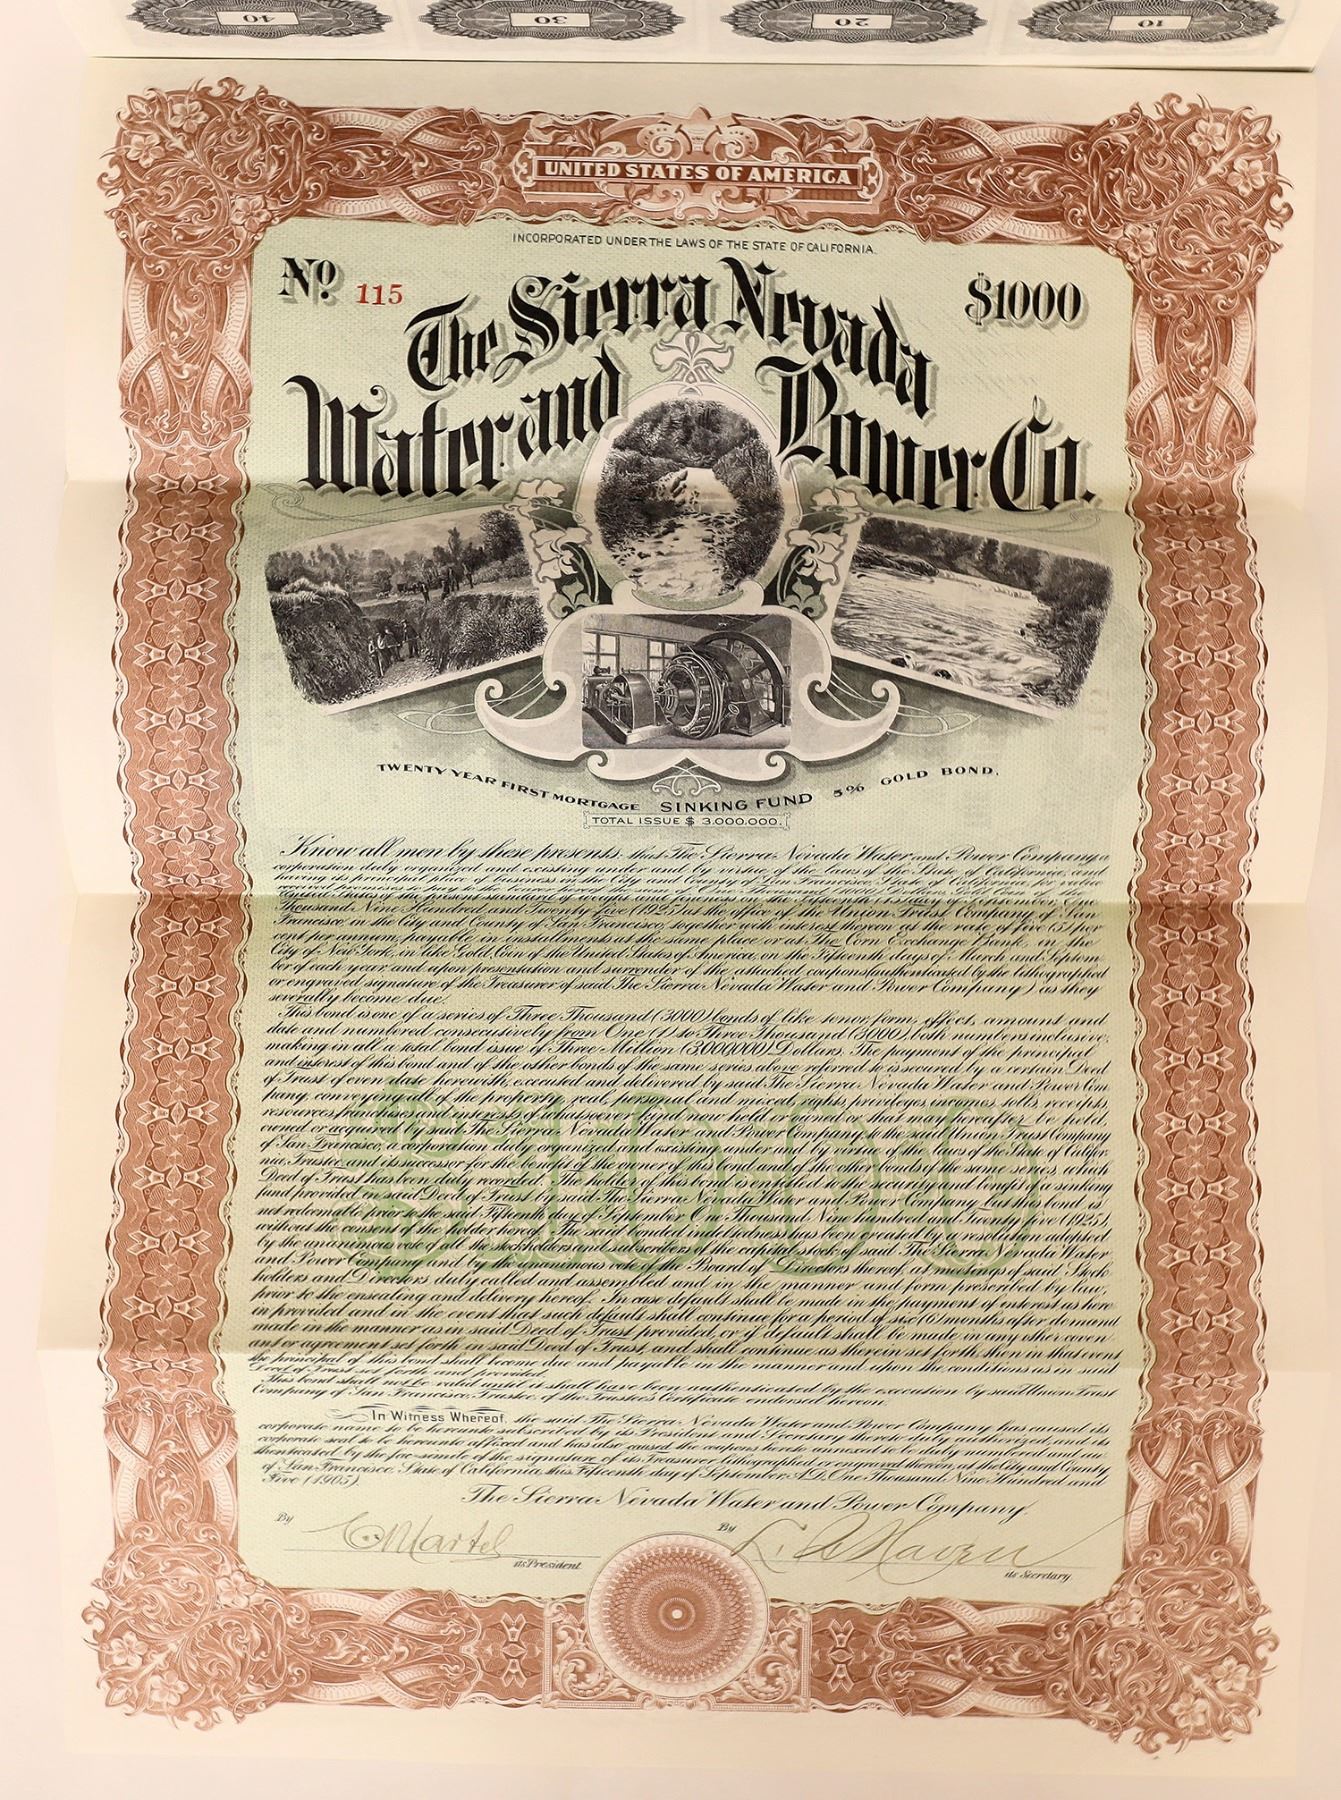 40 30 20 10
UNITED STATES OF AMERICA
INCORPORATED UNDER THE LAWS OF THE STATE OF CALIFORNIA.
No. 115
$1000
The Sierra Nevada
Water and Power Co.
TWENTY YEAR FIRST MORTGAGE SINKING FUND 5% GOLD BOND.
TOTAL ISSUE $ 3.000.000.
Know all men by these presents, that The Sierra Nevada Water and Power Company, a
corporation duly organized and existing under and by virtue of the laws of the State of California, and
having its principal place of business in the City and County of San Francisco, State of California, for value
received promises to pay to the bearer hereof the sum of One Thousand (1000) Dollars in Gold Coin of the
United States of the present standard of weight and fineness on the Fifteenth (15) day of September, One
Thousand Nine Hundred and Twenty five (1925) at the office of the Union Trust Company of San
Francisco, in the City and County of San Francisco, together with interest thereon at the rate of five (5) per
cent per annum, payable in installments at the same place or at The Corn Exchange Bank, in the
City of New York, in like Gold Coin of the United States of America, on the Fifteenth days of March and Septem-
ber of each year, and upon presentation and surrender of the attached coupons (authenticated by the lithographed
or engraved signature of the Treasurer of said The Sierra Nevada Water and Power Company) as they
severally become due.
This bond is one of a series of Three Thousand (3000) bonds of like tenor, form, effect, amount and
date and numbered consecutively from One (1) to Three Thousand (3000), both numbers inclusive,
making in all a total bond issue of Three Million (3,000,000) Dollars. The payment of the principal
and interest of this bond and of the other bonds of the same series above referred to is secured by a certain Deed
of Trust of even date herewith, executed and delivered by said The Sierra Nevada Water and Power Com-
pany, conveying all of the property, real, personal and mixed, rights, privileges, incomes, tolls, receipts,
resources, franchises and interests of whatsoever kind now held or owned or that may hereafter be held,
owned or acquired by said The Sierra Nevada Water and Power Company, to the said Union Trust Company
of San Francisco, a corporation duly organized and existing under and by virtue of the laws of the State of Califor-
nia, Trustee, and its successor for the benefit of the owner of this bond and of the other bonds of the same series, which
Deed of Trust has been duly recorded. The holder of this bond is entitled to the security and benefit of a sinking
fund provided in said Deed of Trust by said The Sierra Nevada Water and Power Company, but this bond is
not redeemable prior to the said Fifteenth day of September, One Thousand Nine hundred and Twenty five (1925),
without the consent of the holder hereof. The said bonded indebtedness has been created by a resolution adopted
by the unanimous vote of all the stockholders and subscribers of the capital stock of said The Sierra Nevada Water
and Power Company and by the unanimous vote of the Board of Directors thereof, at meetings of said Stock-
holders and Directors duly called and assembled and in the manner and form prescribed by law,
prior to the ensealing and delivery hereof. In case default shall be made in the payment of interest as here-
in provided and in the event that such default shall continue for a period of six (6) months after demand
made in the manner as in said Deed of Trust provided, or if default shall be made in any other coven-
ant or agreement set forth in said Deed of Trust, and shall continue as therein set forth, then in that event
the principal of this bond shall become due and payable in the manner and upon the conditions as in said
Deed of Trust set forth and provided.
This bond shall not be valid until it shall have been authenticated by the execution by said Union Trust
Company of San Francisco, Trustee, of the Trustee's Certificate endorsed hereon.
In Witness Whereof, the said The Sierra Nevada Water and Power Company has caused its
corporate name to be hereunto subscribed by its President and Secretary thereto duly authorized, and its
corporate seal to be hereunto affixed and has also caused the coupons hereto annexed to be duly numbered and au-
thenticated by the fac-simile of the signature of its Treasurer lithographed or engraved thereon, at the City and County
of San Francisco, State of California, this Fifteenth day of September, A.D. One Thousand Nine Hundred and
Five (1905).
The Sierra Nevada Water and Power Company,
By E. Martel its President
By its Secretary